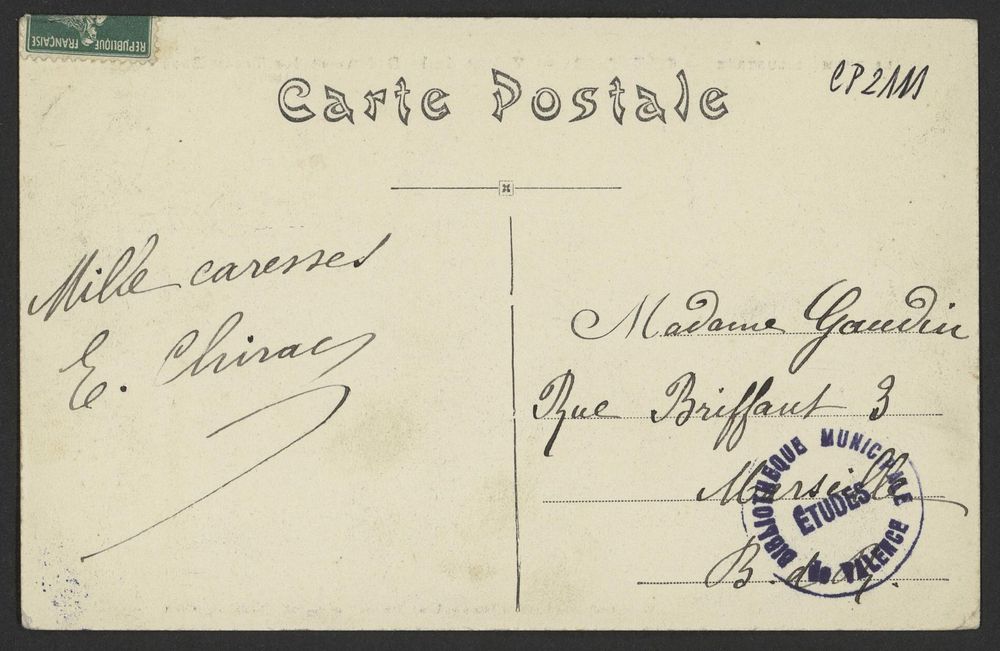 REPUBLIQUE FRANÇAISE
CP2111
Carte Postale
Mille caresses
E. Chirac
Madame Gaudin
Rue Briffaut 3
Marseille
B. d. R.
BIBLIOTHÈQUE MUNICIPALE
ÉTUDES
DE VALENCE